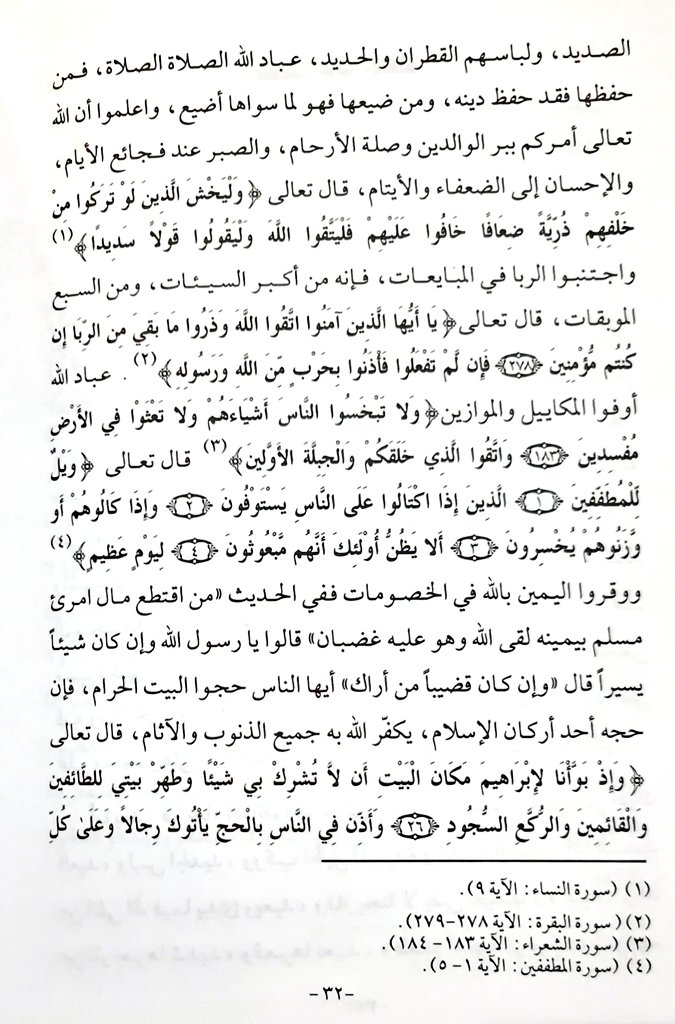 الصديد، ولباسهم القطران والحديد، عباد الله الصلاة الصلاة، فمن
حفظها فقد حفظ دينه، ومن ضيعها فهو لما سواها أضيع، واعلموا أن الله
تعالى أمركم ببر الوالدين وصلة الأرحام، والصبر عند فجائع الأيام،
والإحسان إلى الضعفاء والأيتام، قال تعالى ﴿وَلْيَخْشَ الَّذِينَ لَوْ تَرَكُوا مِنْ
خَلْفِهِمْ ذُرِّيَّةً ضِعَافًا خَافُوا عَلَيْهِمْ فَلْيَتَّقُوا اللَّهَ وَلْيَقُولُوا قَوْلاً سَدِيدًا﴾(١)
واجتنبوا الربا في المبايعات، فإنه من أكبر السيئات، ومن السبع
الموبقات، قال تعالى﴿يَا أَيُّهَا الَّذِينَ آمَنُوا اتَّقُوا اللَّهَ وَذَرُوا مَا بَقِيَ مِنَ الرِّبَا إِن
كُنتُم مُّؤْمِنِينَ ﴿٢٧٨﴾ فَإِن لَّمْ تَفْعَلُوا فَأْذَنُوا بِحَرْبٍ مِّنَ اللَّهِ وَرَسُولِهِ﴾(٢). عباد الله
أوفوا المكاييل والموازين﴿وَلَا تَبْخَسُوا النَّاسَ أَشْيَاءَهُمْ وَلَا تَعْثَوْا فِي الأَرْضِ
مُفْسِدِينَ ﴿١٨٣﴾ وَاتَّقُوا الَّذِي خَلَقَكُمْ وَالْجِبِلَّةَ الأَوَّلِينَ﴾(٣) قال تعالى ﴿وَيْلٌ
لِّلْمُطَفِّفِينَ ﴿١﴾ الَّذِينَ إِذَا اكْتَالُوا عَلَى النَّاسِ يَسْتَوْفُونَ ﴿٢﴾ وَإِذَا كَالُوهُمْ أَو
وَّزَنُوهُمْ يُخْسِرُونَ ﴿٣﴾ أَلا يَظُنُّ أُوْلَئِكَ أَنَّهُم مَّبْعُوثُونَ ﴿٤﴾ لِيَوْمٍ عَظِيمٍ﴾(٤)
ووقروا اليمين بالله في الخصومات ففي الحديث «من اقتطع مال امرئ
مسلم بيمينه لقى الله وهو عليه غضبان» قالوا يا رسول الله وإن كان شيئاً
يسيراً قال «وإن كان قضيباً من أراك» أيها الناس حجوا البيت الحرام، فإن
حجه أحد أركان الإسلام، يكفّر الله به جميع الذنوب والآثام، قال تعالى
﴿وَإِذْ بَوَّأْنَا لِإِبْرَاهِيمَ مَكَانَ الْبَيْتِ أَن لاَّ تُشْرِكْ بِي شَيْئًا وَطَهِّرْ بَيْتِيَ لِلطَّائِفِينَ
وَالْقَائِمِينَ وَالرُّكَّعِ السُّجُودِ ﴿٢٦﴾ وَأَذِّن فِي النَّاسِ بِالْحَجِّ يَأْتُوكَ رِجَالاً وَعَلَىٰ كُلِّ
(١) (سورة النساء: الآية ٩).
(٢) (سورة البقرة: الآية ٢٧٨-٢٧٩).
(٣) (سورة الشعراء: الآية ١٨٣-١٨٤).
(٤) (سورة المطففين: الآية ١-٥).
-٣٢-